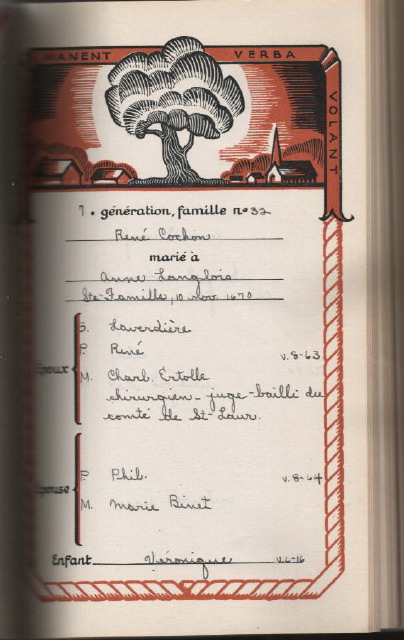 MANENT VERBA VOLANT
7. génération, famille nº 32
René Cochon
marié à
Anne Langlois
Ste-Famille, 10 nov. 1670
S. Laverdière
P. René v. 8-63
Époux M. Charl. Ertolle
chirurgien - juge-bailli du
comté de St-Laur.
P. Phil. v. 8-64
Épouse M. Marie Binet
Enfant Véronique v. 6-16